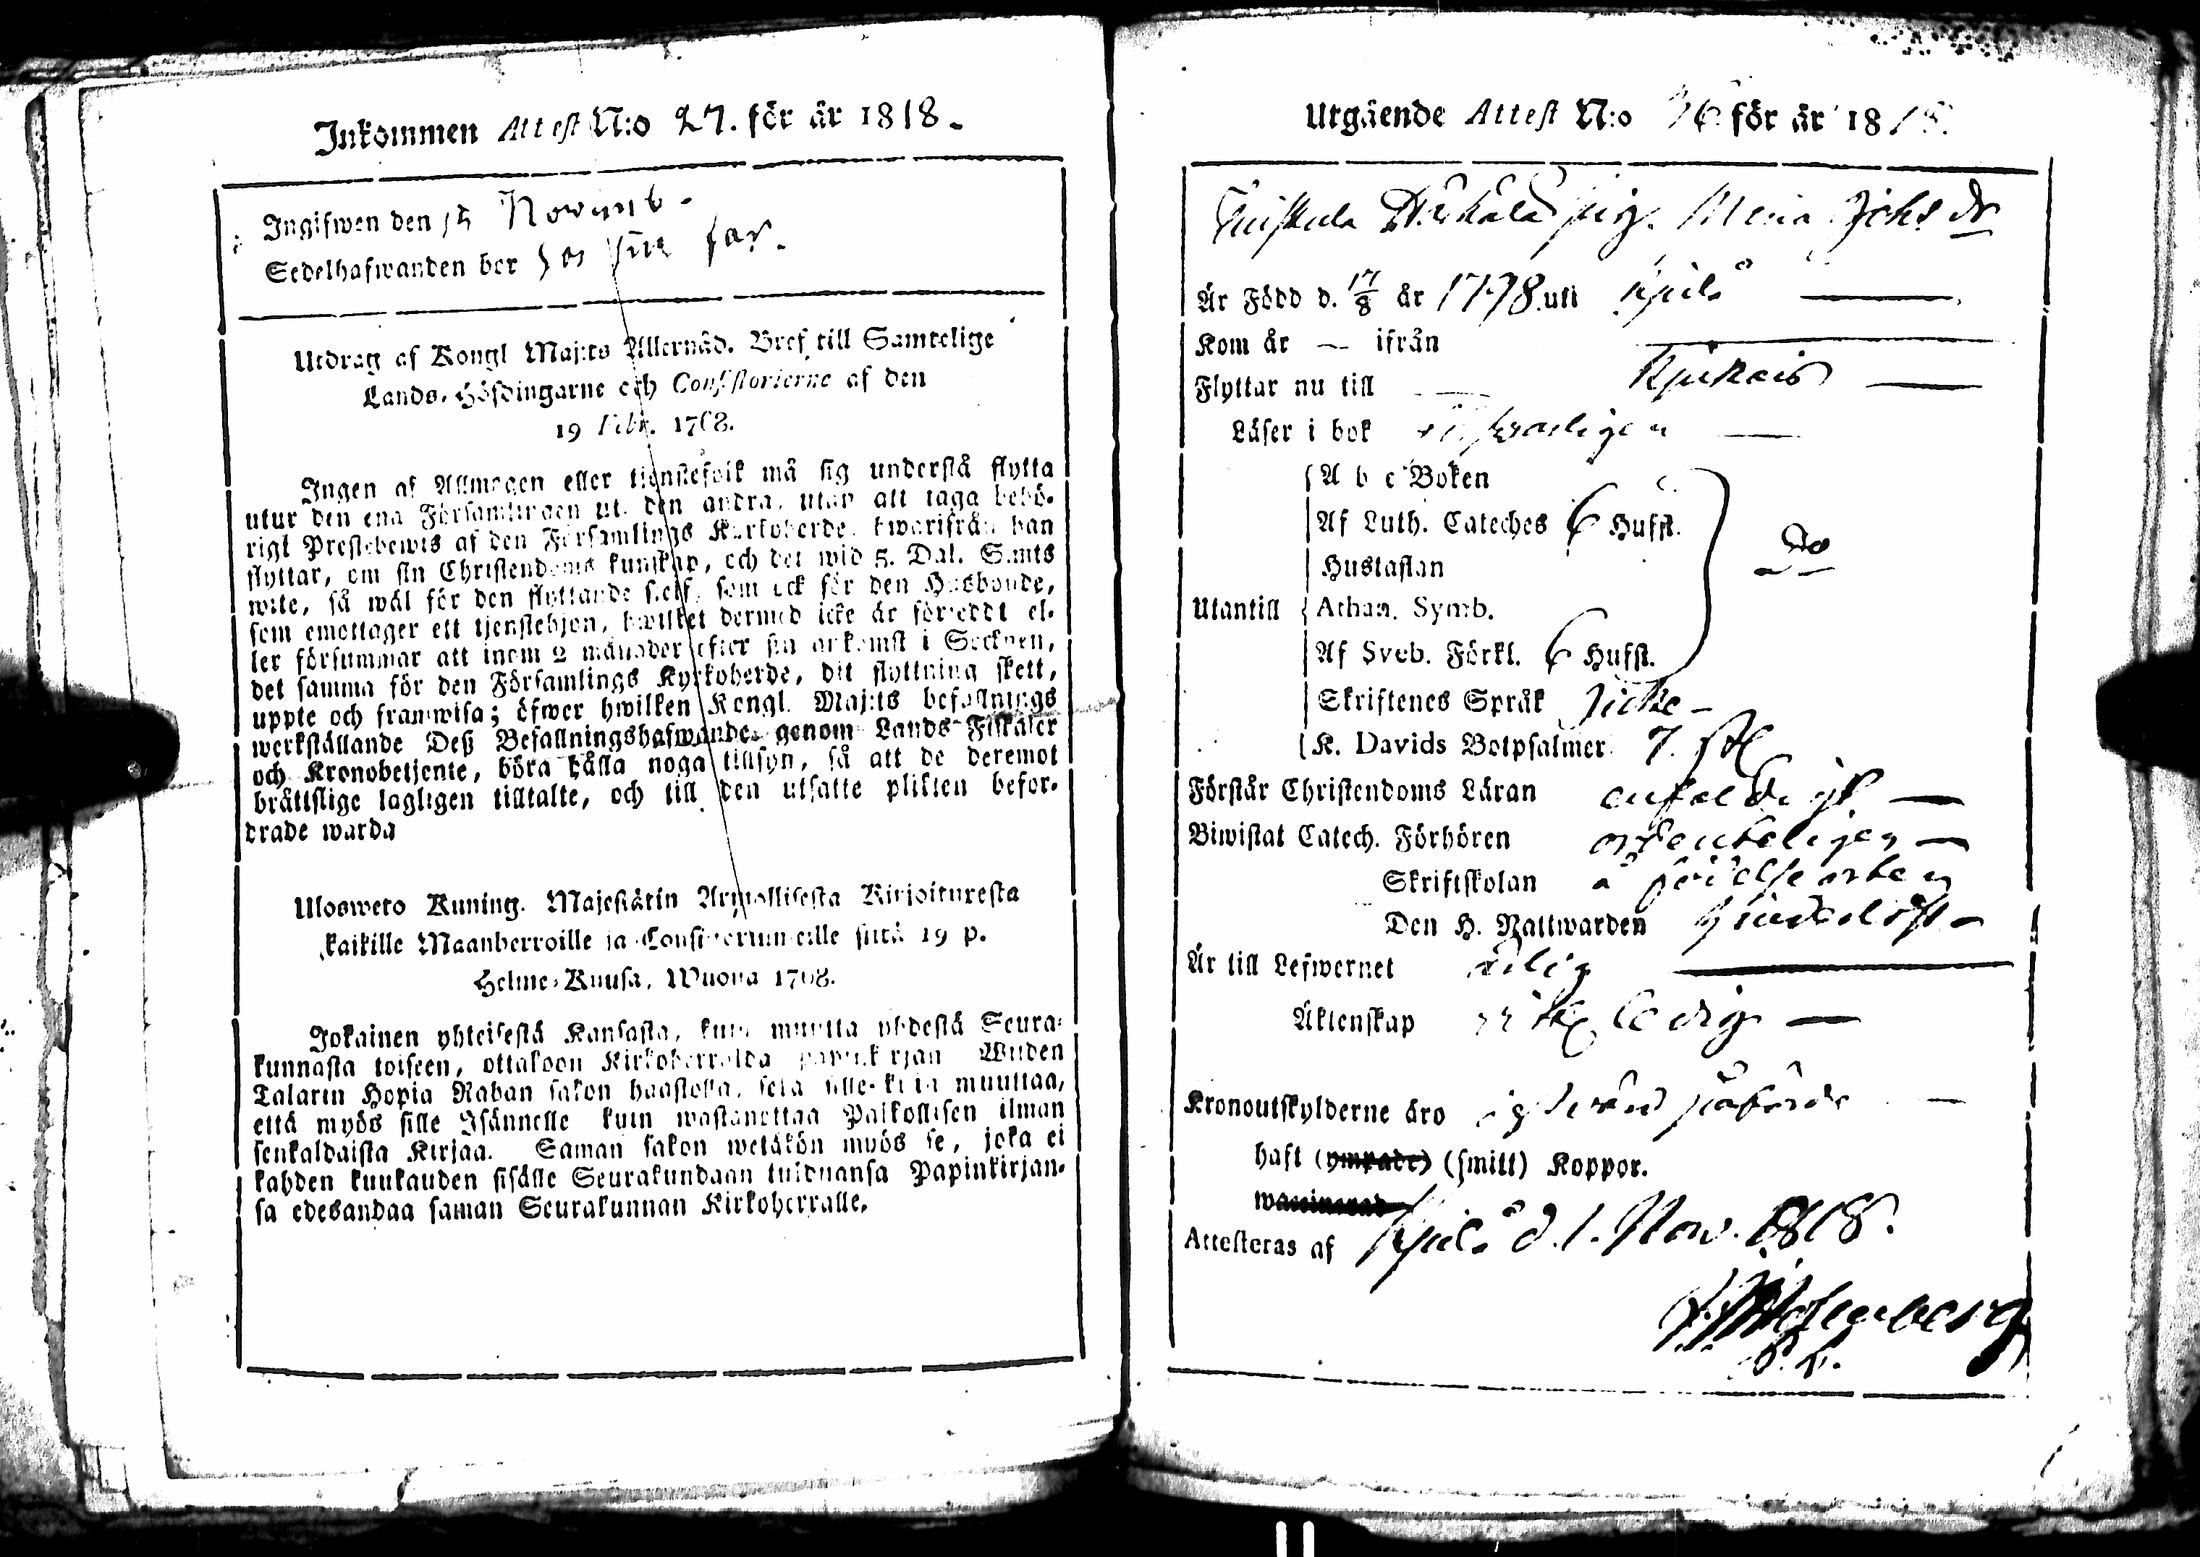 Inkommen Attest N:o 27. för år 1818.
Ingifwen den 15 Novemb.
Sedelhafwanden bor hos sin far.
Utdrag af Kongl Maj:ts Allernåd. Bref till Samtelige
Lands-Höfdingarne och Consistorierne af den
19 Febr. 1768.
Ingen af Allmogen eller tjenstefolk må sig understå flytta
utur den ena Församlingen ut. den andra, utan att taga behö-
rigt Prestebewis af den Församlings Kyrkoherde, hwarifrån han
flyttar, om sin Christendoms kunskap, och det wid 5. Dal. S:mts
wite, så wäl för den flyttande sjelf, som ock för den Husbonde,
som emottager ett tjenstehjon, hwilket dermed icke är försedt el-
ler försummar att inom 2 månader efter sin ankomst i Socknen,
det samma för den Församlings Kyrkoherde, dit flyttning skett,
uppte och framwisa; öfwer hwilken Kongl. Maj:ts befallnings
werkställande Deß Befallningshafwande genom Lands-Fiskaler
och Kronobetjente, böra hålla noga tillsyn, så att de deremot
bråttslige lagligen tilltalte, och till den utsatte plikten befor-
drade warda
Ulosweto Kuning. Majestätin Armollisesta Kirjoituxesta
kaikille Maanherroille ja Consistoriumeille siitä 19 p.
Helme-Kuusa, Wuona 1768.
Jokainen yhteisestä Kansasta, kuin muutta yhdestä Seura-
kunnasta toiseen, ottakoon Kirkoherralda papinkirjan Wiiden
Talarin Hopia Rahan sakon haastolla, sekä sille kuin muuttaa,
että myös sille Isännelle kuin wastanottaa Palkollisen ilman
senkaldaista Kirjaa. Saman sakon wetäkön myös se, joka ei
kahden kuukauden sisälle Seurakundaan tulduansa Papinkirjan-
sa edesandaa saman Seurakunnan Kirkoherralle.
Utgående Attest N:o för år 1818.
pig. Maria Johs dr
Är Född d. 17/8 år 1798 uti Kjulå
Kom år — ifrån
Flyttar nu till Kjukais
Läser i bok
A b c Boken
Af Luth. Cateches 6 Hufst.
Hustaflan
Utantill Athan. Symb.
Af Sveb. Förkl. 6 Hufst.
Do
Skriftenes Språk Icke
K. Davids Botpsalmer 7. st
Förstår Christendoms Läran enfaldigt
Biwistat Catech. Förhören ordenteligen
Skriftskolan
Den H. Nattwarden
Är till Lefwernet ärlig
Äktenskap ledig
Kronoutskylderne äro
haft (ympade) (smitt) Koppor.
Attesteras af Kjulå d. 1. Nov. 1818.